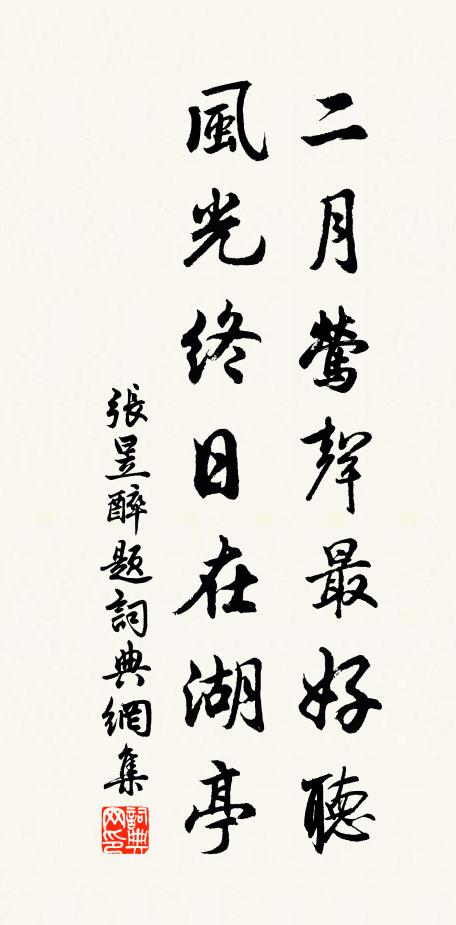 二月鶯聲最好聽
風光終日在湖亭
張昱醉題詞典網集
詞典網印